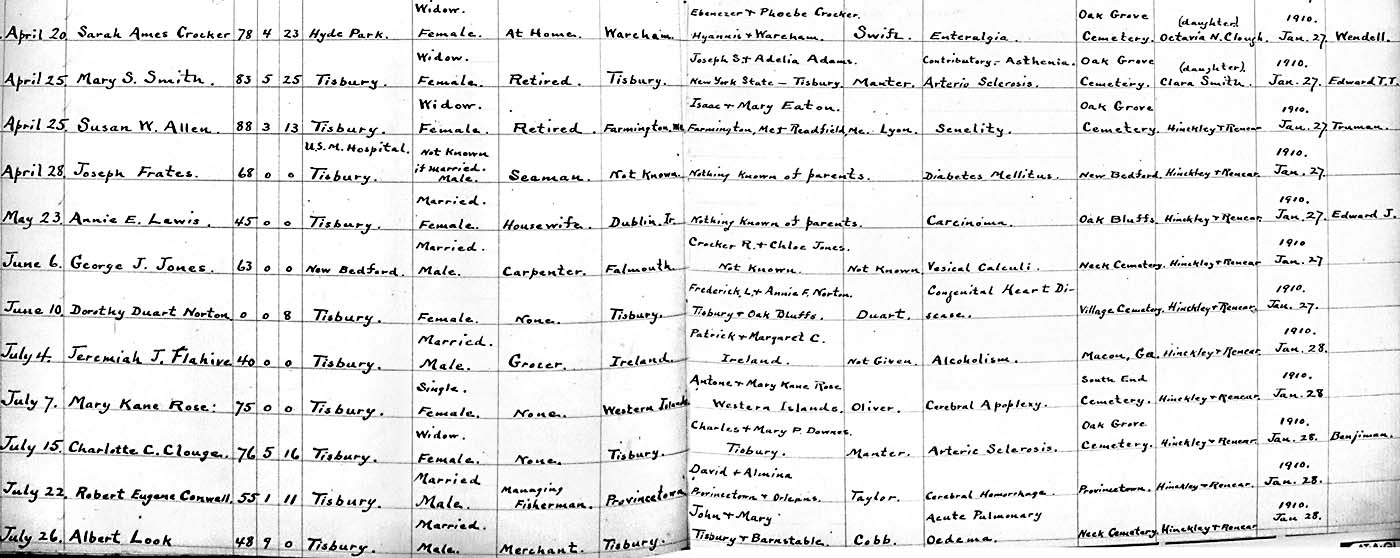 Widow. Ebenezer + Phoebe Crocker. Oak Grove (daughter) 1910.
April 20. Sarah Ames Crocker 78 4 23 Hyde Park. Female. At Home. Wareham. Hyannis + Wareham. Swift. Enteralgia. Cemetery. Octavia N. Clough. Jan. 27. Wendell.
Widow. Joseph S. + Adelia Adams. Contributory - Asthenia. Oak Grove (daughter). 1910.
April 25. Mary S. Smith. 83 5 25 Tisbury. Female. Retired. Tisbury. New York State - Tisbury. Manter. Arterio Sclerosis. Cemetery. Clara Smith. Jan. 27. Edward T.T.
Widow. Isaac + Mary Eaton. Oak Grove 1910.
April 25. Susan W. Allen. 88 3 13 Tisbury. Female. Retired. Farmington, Me. Farmington, Me + Readfield, Me. Lyon. Senelity. Cemetery. Hinckley + Renear. Jan. 27 Truman.
U.S.M. Hospital. Not Known if married. 1910.
April 28. Joseph Frates. 68 0 0 Tisbury. Male. Seaman. Not Known. Nothing Known of parents. Diabetes Mellitus. New Bedford. Hinckley + Renear. Jan. 27.
Married. 1910.
May 23. Annie E. Lewis. 45 0 0 Tisbury. Female. Housewife. Dublin. Ir. Nothing Known of parents. Carcinoma. Oak Bluffs. Hinckley + Renear. Jan. 27. Edward J.
Married. Crocker R. + Chloe Jones. 1910
June 6. George J. Jones. 63 0 0 New Bedford. Male. Carpenter. Falmouth Not Known. Not Known Vesical Calculi. Neck Cemetery. Hinckley + Renear Jan. 27
Frederick L. + Annie F. Norton. Congenital Heart Di- 1910.
June 10. Dorothy Duart Norton 0 0 8 Tisbury. Female. None. Tisbury. Tisbury + Oak Bluffs. Duart. sease. Village Cemetery. Hinckley + Renear. Jan. 27.
Married. Patrick + Margaret C. 1910.
July 4. Jeremiah J. Flahive 40 0 0 Tisbury. Male. Grocer. Ireland. Ireland. Not Given. Alcoholism. Macon, Ga. Hinckley + Renear. Jan. 28.
Single. Antone + Mary Kane Rose South End 1910.
July 7. Mary Kane Rose. 75 0 0 Tisbury. Female. None. Western Islands Western Islands. Oliver. Cerebral Apoplexy. Cemetery. Hinckley + Renear. Jan. 28
Widow. Charles + Mary P. Downes. Oak Grove 1910.
July 15. Charlotte C. Clouge. 76 5 16 Tisbury. Female. None. Tisbury. Tisbury. Manter. Arteric Sclerosis. Cemetery. Hinckley + Renear. Jan. 28. Benjiman.
Married David + Almina 1910.
July 22. Robert Eugene Conwell. 55 1 11 Tisbury. Male. Managing Fisherman. Provincetown Provincetown + Orleans. Taylor. Cerebral Hemorrhage. Provincetown. Hinckley + Renear. Jan. 28.
Married. John + Mary Acute Pulmonary 1910.
July 26. Albert Look 48 9 0 Tisbury. Male. Merchant. Tisbury. Tisbury + Barnstable. Cobb. Oedema. Neck Cemetery. Hinckley + Renear Jan 28.